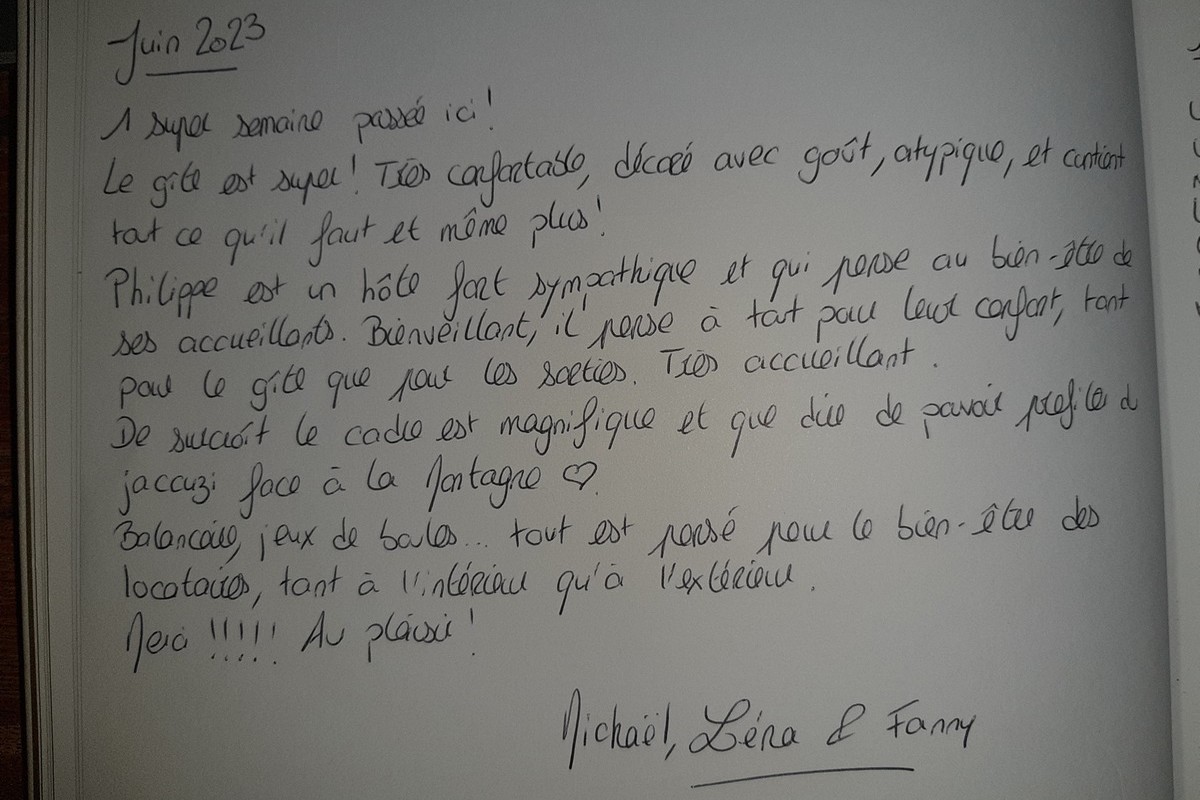 Juin 2023
1 super semaine passée ici!
Le gîte est super! Très confortable, décoré avec goût, atypique, et contient
tout ce qu'il faut et même plus!
Philippe est un hôte fort sympathique et qui pense au bien-être de
ses accueillants. Bienveillant, il pense à tout pour leur confort, tant
pour le gîte que pour les sorties. Très accueillant.
De surcroît le cadre est magnifique et que dire de pavoir profiter d
jaccuzi face à la Montagne ♡.
Balancoire, jeux de boules... tout est pensé pour le bien-être des
locataires, tant à l'intérieur qu'à l'extérieur.
Merci !!!!! Au plaisir!
Michaël, Léna & Fanny